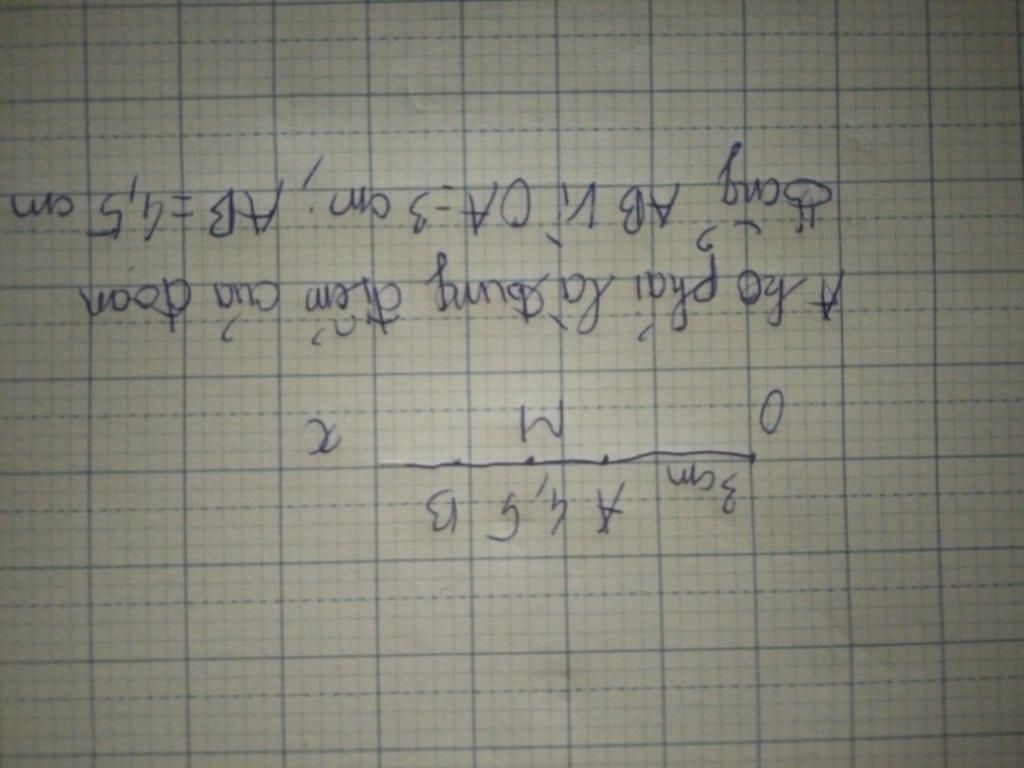 3cm A 4,5 B
O M x
A ko phải là trung điểm của đoạn
thẳng AB Vì OA = 3 cm; AB = 4,5 cm